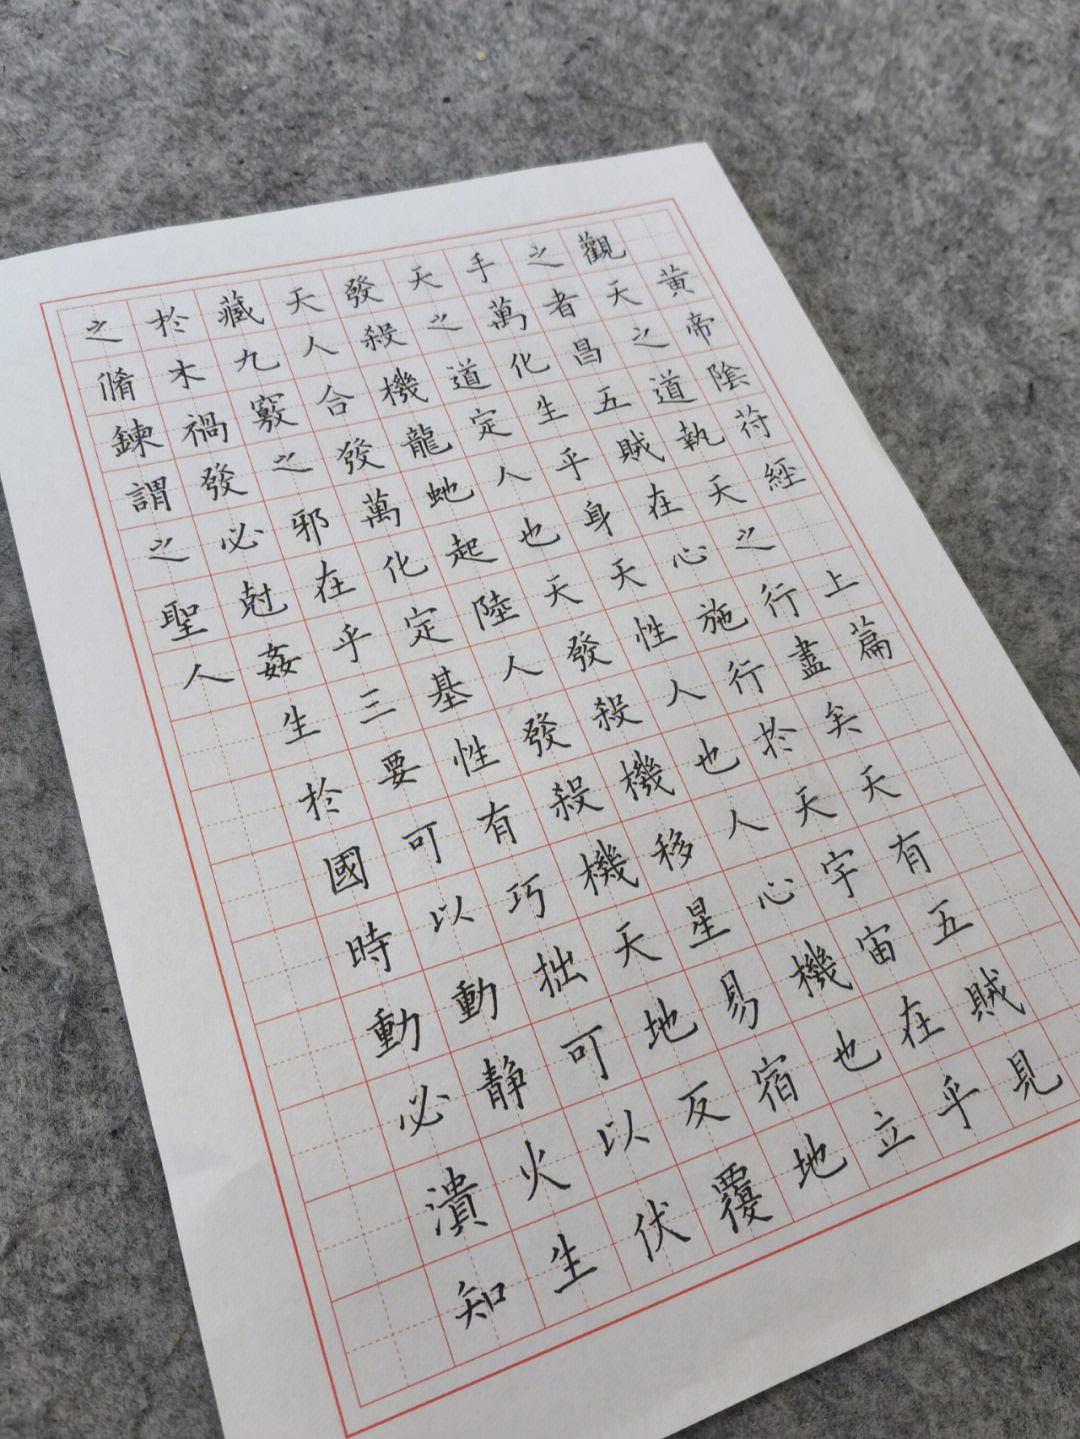 黄帝陰符經 上篇
觀天之道執天之行盡矣天有五賊見
之者昌五賊在心施行於天宇宙在乎
手萬化生乎身天性人也人心機也立
天之道定人也天發殺機移星易宿地
發殺機龍虵起陸人發殺機天地反覆
天人合發萬化定基性有巧拙可以伏
藏九竅之邪在乎三要可以動静火生
於木禍發必尅姦生於國時動必潰知
之脩鍊謂之聖人